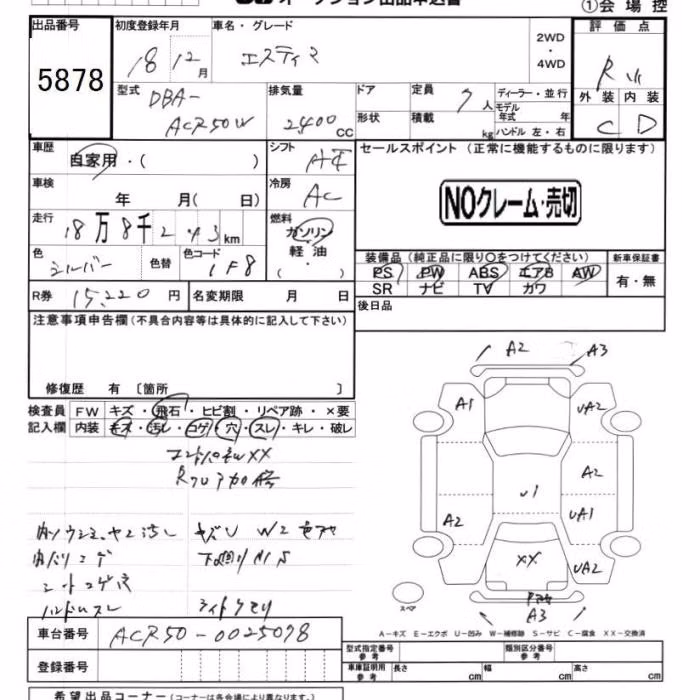 オークション出品申込書
①会場控
出品番号
5878
初度登録年月
18 12月
車名・グレード
エスティマ
2WD
・
4WD
評価点
R
外装 内装
C D
型式
DBA-
ACR50W
排気量
2400 CC
ドア
形状
定員 7人
積載 kg
ディーラー・並行
モデル年式 年
ハンドル 左・右
車歴
自家用・( )
シフト
AT
セールスポイント (正常に機能するものに限ります)
NOクレーム・売切
車検
年 月( 日)
冷房
AC
走行
18万8千243km
燃料
ガソリン
軽油
( ・ )
色
シルバー
色替
色コード
1F8
装備品 (純正品に限り○をつけてください)
新車保証書
PS PW ABS エアB AW
SR ナビ TV カワ
有・無
R券 15,220円
名変期限 月 日
後日品
注意事項申告欄(不具合内容等は具体的に記入して下さい)
修復歴 有 〔箇所 〕
検査員記入欄
FW キズ・飛石・ヒビ割・リペア跡・×要
内装 キズ・汚レ・コゲ・穴・スレ・キレ・破レ
Rフロア加修
シートコゲ穴
ハンドルスレ
ライトクモリ
A2
A3
A1
UA2
A2
U1
A2
UA1
XX
UA2
A3
スペア
A−キズ E−エクボ U−凹み W−補修跡 S−サビ C−腐食 XX−交換済
車台番号 ACR50-0025078
登録番号
型式指定番号
参考
類別区分番号
参考
車庫証明用
参考
長さ cm
幅 cm
高さ cm
希望出品コーナー(コーナーは各会場により異なります)